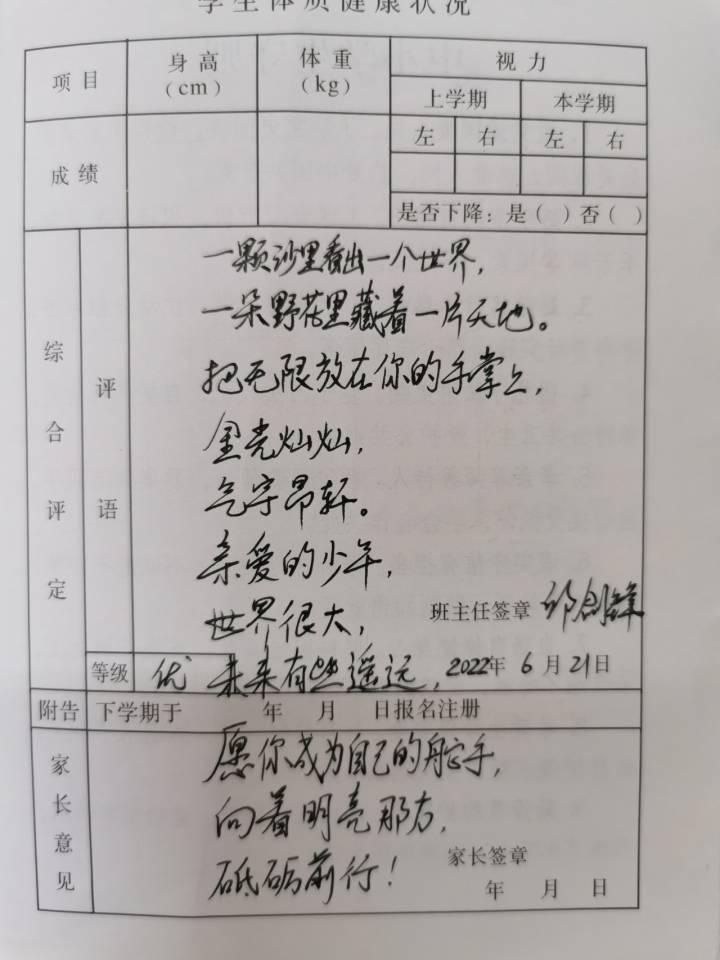 学生体质健康状况
项目
身高
(cm)
体重
(kg)
视力
上学期
本学期
左
右
左
右
成绩
是否下降：是（ ）否（ ）
综合评定
评语
一颗沙里看出一个世界，
一朵野花里藏着一片天地。
把无限放在你的手掌上，
金光灿灿，
气宇昂轩。
亲爱的少年，
世界很大，
班主任签章 邱剑锋
等级
优
未来有些遥远，
2022年 6月21日
附告
下学期于 年 月 日报名注册
家长意见
愿你成为自己的舵手，
向着明亮那方，
砥砺前行！
家长签章
年 月 日